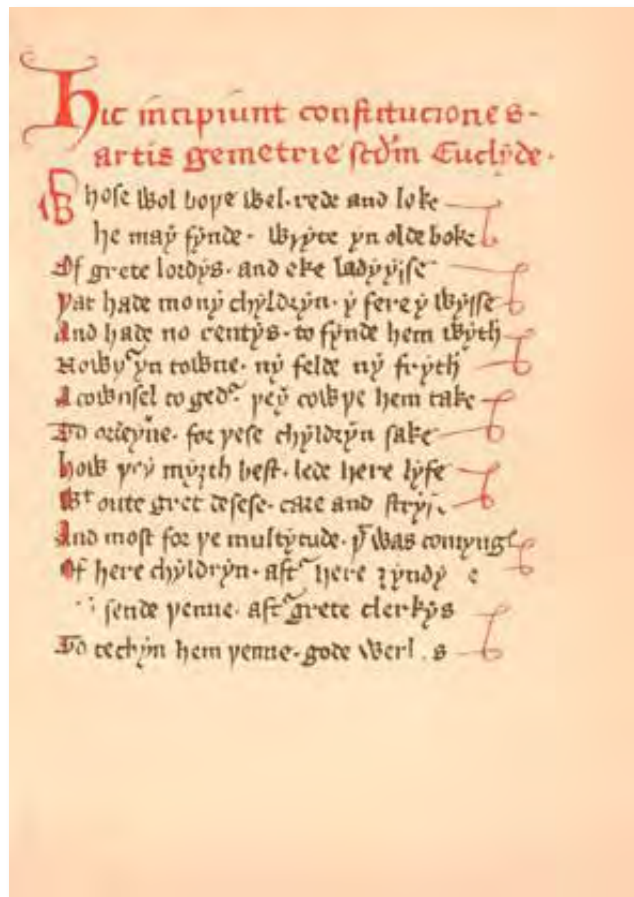 Hic incipiunt constituciones
artis gemetrie secundum Euclyde.
Whose wol boþe wel rede and loke
he may fynde wryte yn olde boke
Of grete lordys and eke ladyysse
Þat hade mony chyldryn y fere y wysse
And hade no rentys to fynde hem wyth
Nowþer yn towne ny felde ny fryth
A cownsel togeder þey cowþe hem take
To ordeyne for þese chyldryn sake
How þey myȝth best lede here lyfe
Wt oute gret desese care and
And most for þe multytude þt was comyng
Of here chyldryn after here
sende þenne after grete clerkys
To techyn hem þenne gode